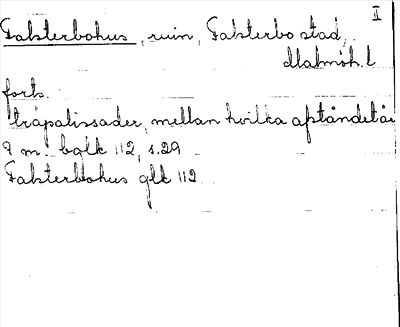 II
Falsterbohus, ruin, Falsterbo stad,
Malmöh. l
forts.
träpalissader, mellan hvilka afståndet är
9 m. bglk 112, s. 29
Falsterbohus glk 112